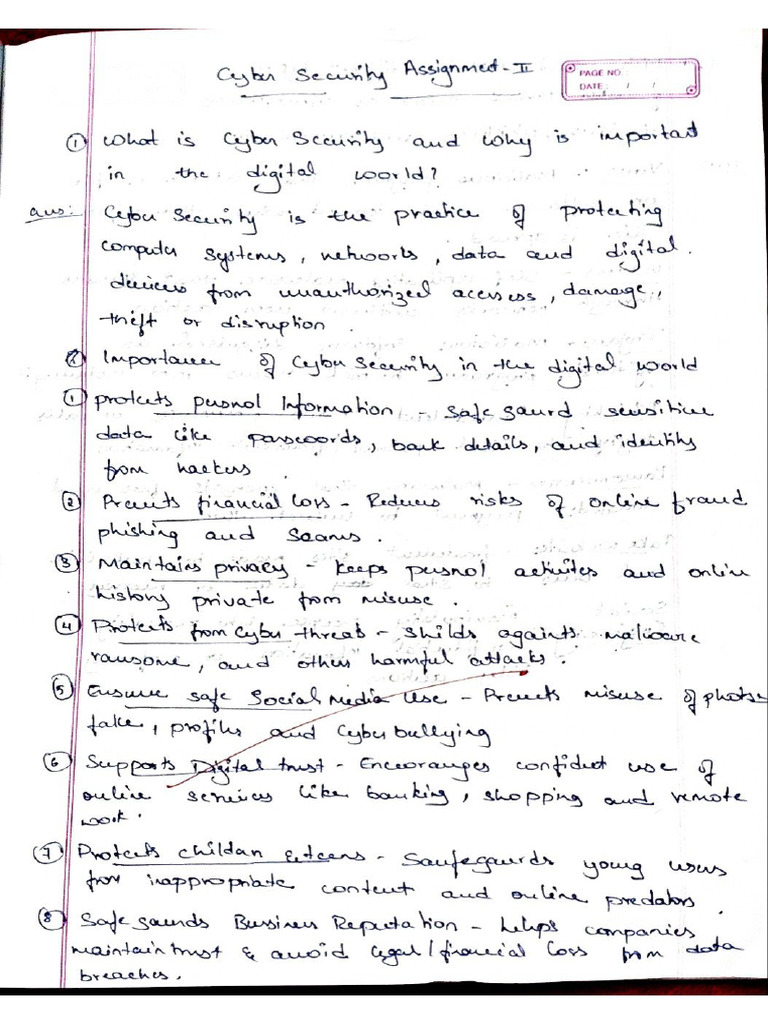 Cyber Security Assignmet - II
PAGE NO.
DATE: / /
① What is Cyber Security and why is important
in the digital world?
ans: Cyber Security is the practice of protecting
computer systems, networks, data and digital.
devices from unauthorized accesess, damage,
theft or disruption.
Importance of Cyber Security in the digital world
① protects pusnol Information - safe gaurd sensitive
data like passwords, bank details, and identity
from hackers.
② Prevents financial loss - Reduces risks of online fraud
phishing and Scams.
③ Maintains privacy - keeps pusnol activites and online
history private from misuse.
④ Protects from cyber threats - shilds againts malware
ransome, and others harmful attacks.
⑤ Ensure safe Social Media Use - Prevents misuse of photos
fake, profiles and Cyber bullying
⑥ Supports Digital trust - Encoranges confident use of
online services like banking, shopping and remote
work.
⑦ Protects childan & teens - Saufegaurds young users
from inappropriate content and online predators.
⑧ Safe gaurds Bussiness Reputation - helps companies
maintain trust & avoid legal/financial loss from data
breaches.